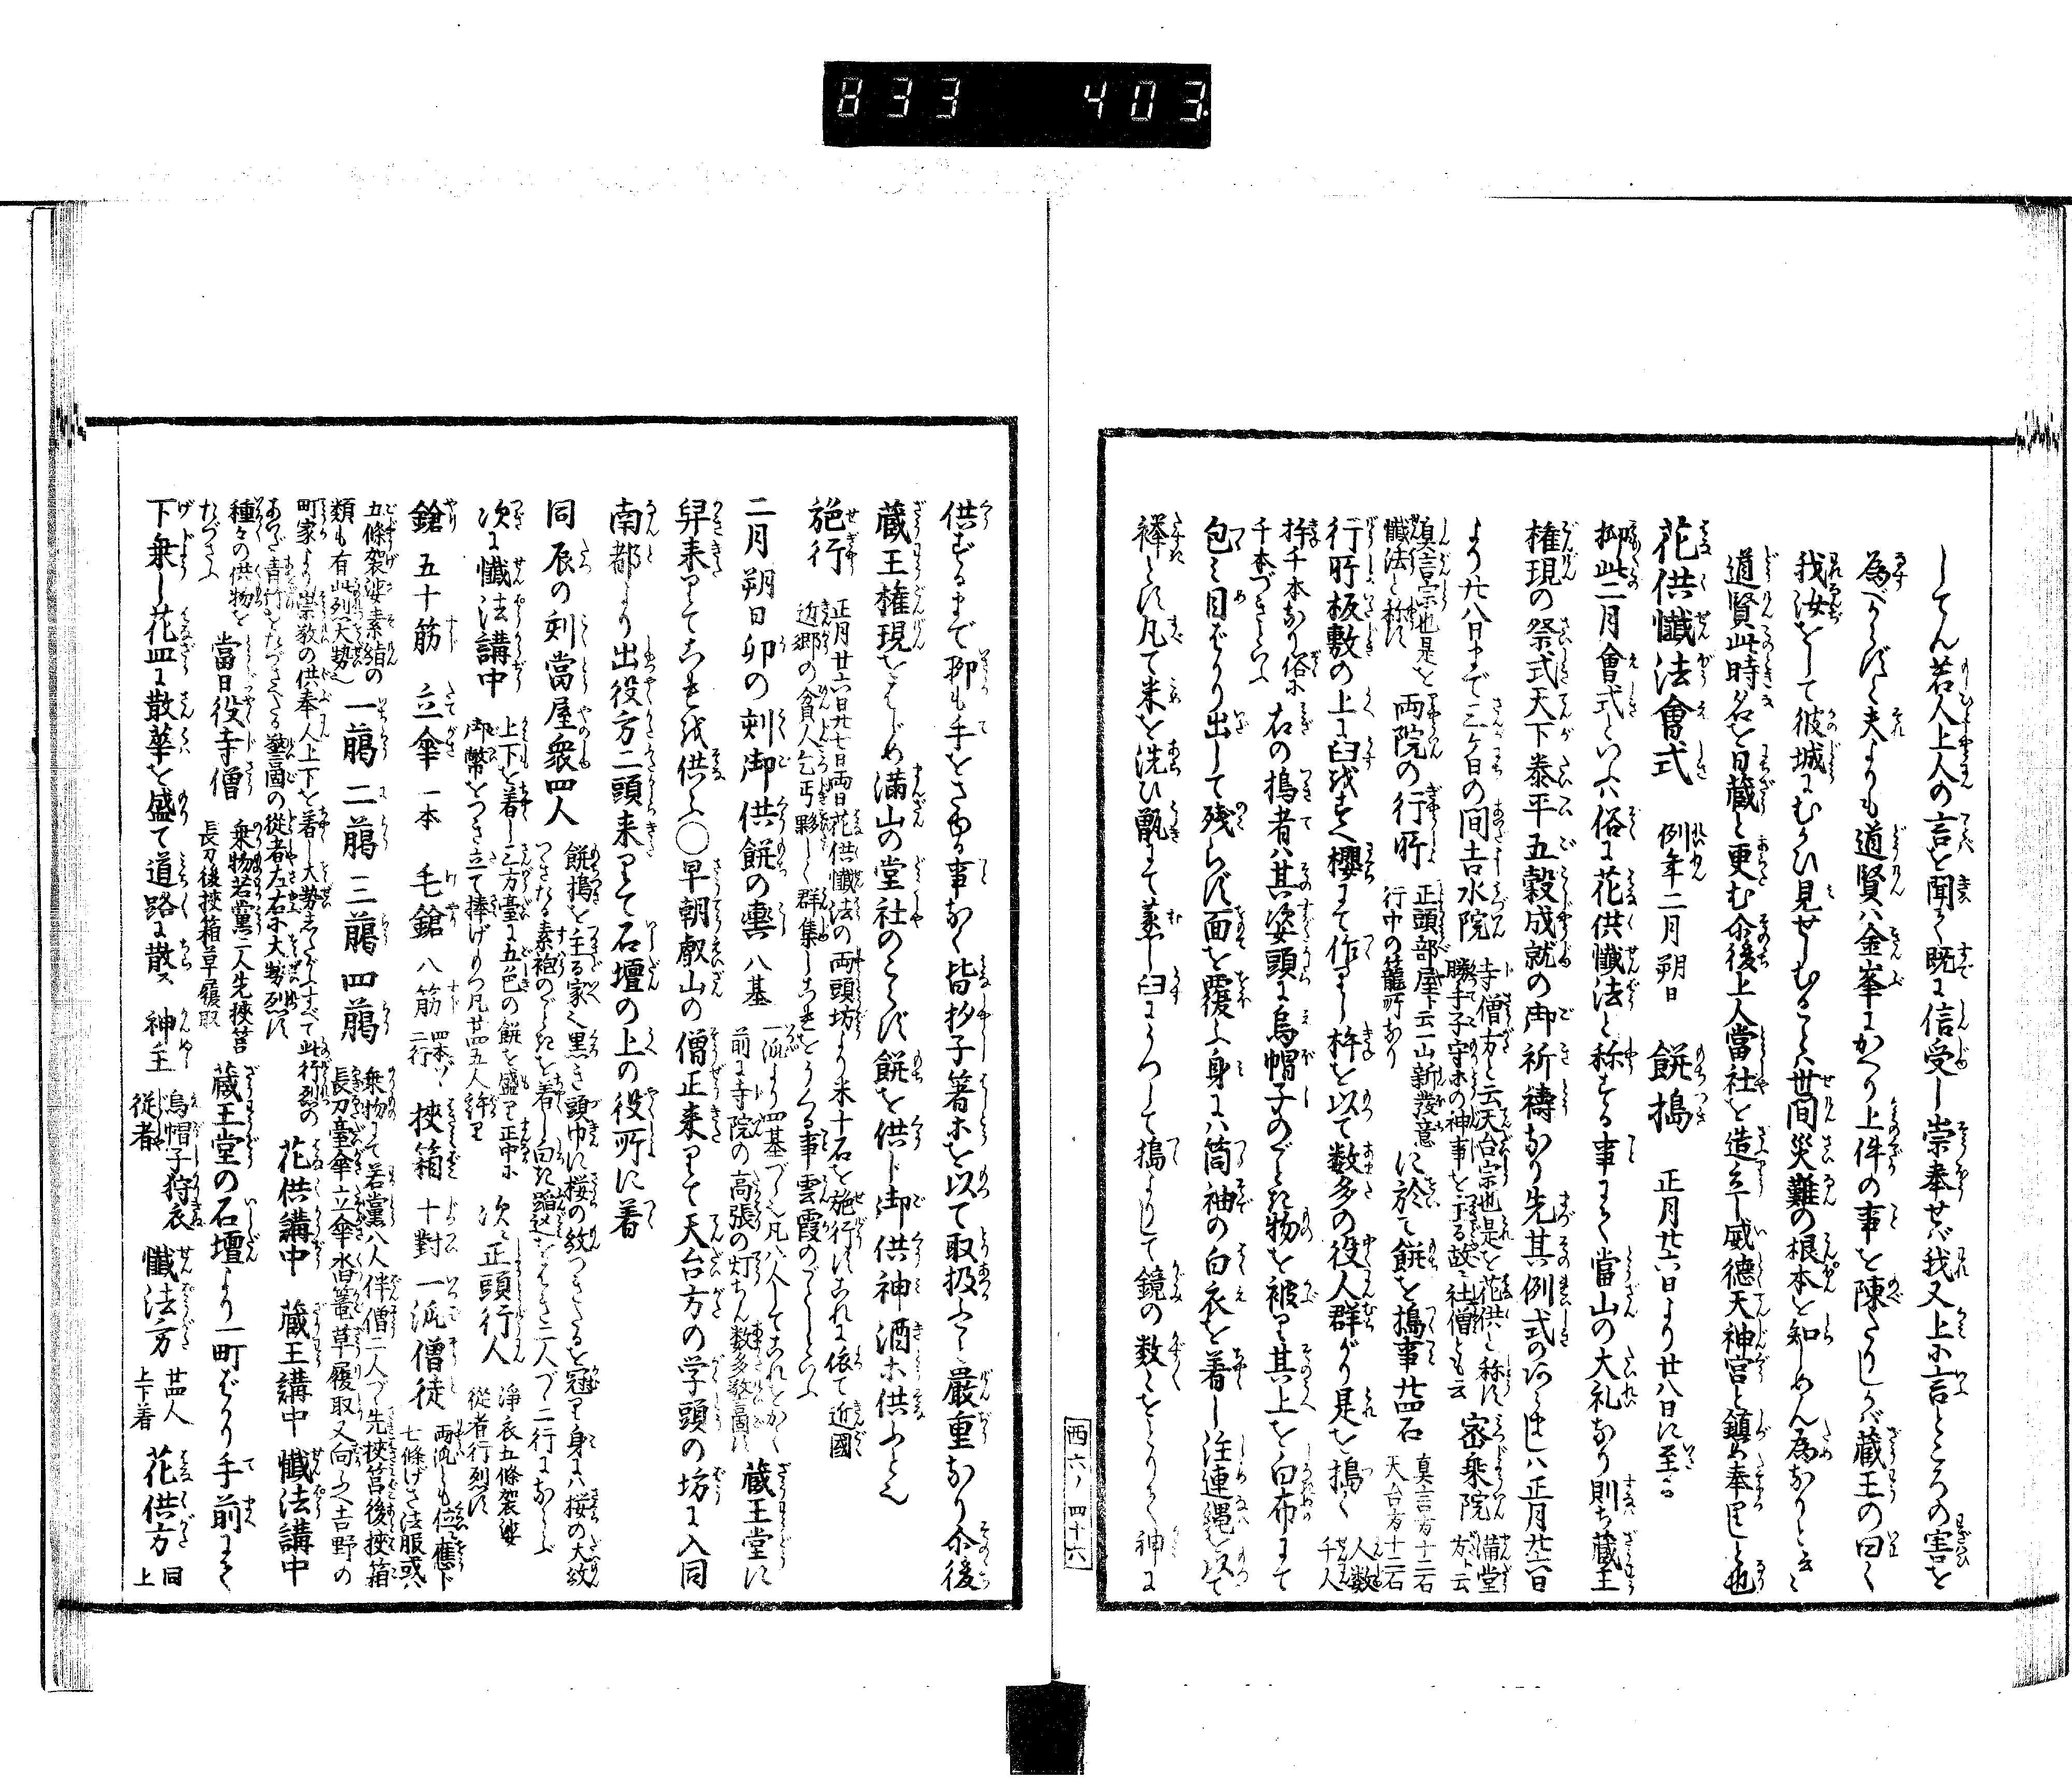 833 403
してん若人上人の言を聞て既に信受し崇奉せバ我又上尓言ところの害を
為べからず夫よりも道賢ハ金峯にかへり上件の事を陳たりしかバ蔵王の曰く
我汝をして彼城にむかひ見せしむることハ世間災難の根本を知しめん為なりとぞ
道賢此時名を日蔵と更む余後上人當社を造立し威徳天神宮と鎮め奉りしと也
花供懺法會式 例年二月朔日 餅搗 正月廿六日より廿八日に至る
抑此二月會式といふハ俗に花供懺法と称する事にて當山の大礼なり則ち蔵王
権現の祭式天下泰平五穀成就の御祈祷なり先其例式のあらましハ正月廿六日
より廿八日まで三ヶ日の間吉水院 寺僧方と云天台宗也是を花供と称す
勝手子守ホの神事を主る故ニ社僧とも云 密乗院 満堂方ト云
真言宗也是を懺法と称す 両院の行所 正頭部屋ト云一山新發意
行中の籠所なり に於て餅を搗事廿四石 真言方十二石
天台方十二石
行所板敷の上に臼をすへ櫻にて作りし杵を以て数多の役人群がり是を搗く 人数千人
杵千本なり俗ニ千本づきといふ 右の搗者ハ其姿頭に烏帽子のごとき物を被り其上を白布にて
包ミ目ばかり出して残らず面を覆ふ身にハ筒袖の白衣を着し注連縄を以て
襷とす凡て米を洗ひ甑にて蒸し臼にうつして搗より して鏡の数々をとりわく神に
西六ノ四十六
供ずるまで聊も手をさゆる事なく皆抄子箸ホを以て取扱ふこと嚴重なり余後
蔵王権現をはじめ満山の堂社のこらず餅を供じ御供神酒ホ供ふとぞ
施行 正月廿六日廿七日両日花供懺法の両頭坊より米十石を施行すこれに依て近國
近郷の貧人乞丐夥しく群集しこれをうくる事雲霞のごとしといふ
二月朔日卯の刻御供餅の輿八基 一派より四基づゝ凡八人してこれをかく
前に寺院の高張の灯ちん数多警固す 蔵王堂に
舁来りてこれを供ふ〇早朝叡山の僧正来りて天台方の学頭の坊に入同
南都より出役方二頭来りて石壇の上の役所に着
同辰の刻當屋衆四人 餅搗を主る家〻黒き頭巾に桜の紋つきたるを冠り身にハ桜の大紋
つきたる素袍のごときを着し向き踏込をはき二人づゝ二行にならぶ
次に懺法講中 上下を着し三方臺に五色の餅を盛り正中ニ
御幣をつき立て捧げもつ凡廿四五人許り 次ニ正頭行人 淨衣五條袈裟
從者行烈す
鎗五十筋 立傘一本 毛鎗八筋 四本ヅヽ
二行 挾箱十對 一派僧徒 両派とも位ニ應ド
七條げさ法服或ハ
五條袈裟素絹の
類も有此列大勢也 一﨟 二﨟 三﨟 四﨟 乗物にて若黨八人伴僧二人づゝ先挾筥後挾箱
長刀臺傘立傘沓篭草履取又向ふへ吉野の
町家より崇敬の供奉人上下を着し大勢したがふすべて此行烈の
あいだ青竹をたづさへたる警固の從者左右ニ大勢列す 花供講中 蔵王講中 懺法講中
種々の供物を
たづさふ 當日役寺僧 乗物若黨二人先挾筥
長刀後挾箱草履取 蔵王堂の石壇より一町ばかり手前にて
下乗し花皿に散華を盛て道路に散ス 神主 烏帽子狩衣
從者 懺法方 廿四人
上下着 花供方 同
上